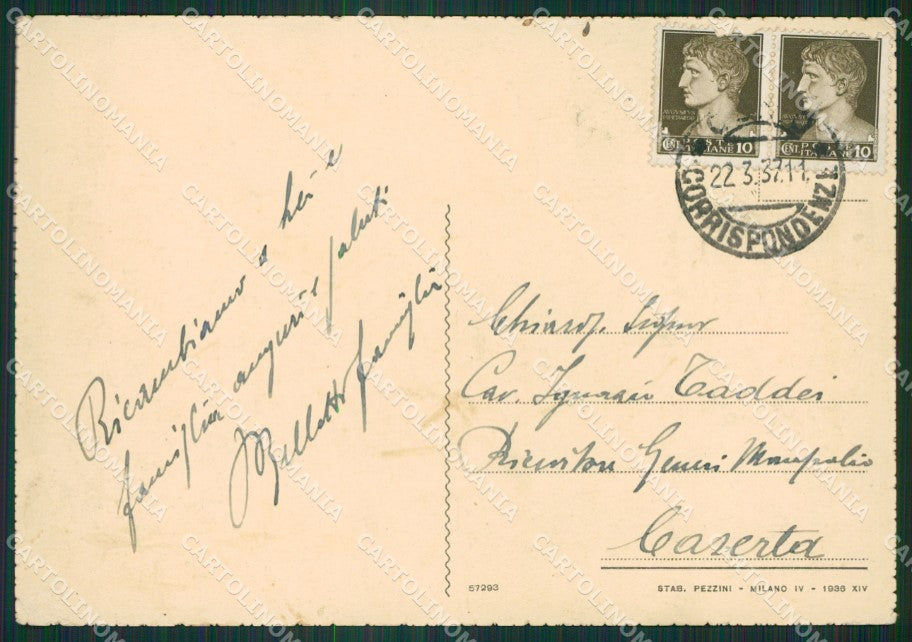 Ricambiamo a Lei e
famiglia auguri e saluti
famiglia
POSTE ITALIANE
CENT. 10
POSTE ITALIANE
CENT. 10
22.3.37.11
CORRISPONDENZ
Chiarss. Signor
Cav. Ignazio Taddei
Ricevitore Generi Monopolio
Caserta
57293
STAB. PEZZINI - MILANO IV - 1936 XIV
CARTOLINOMANIA